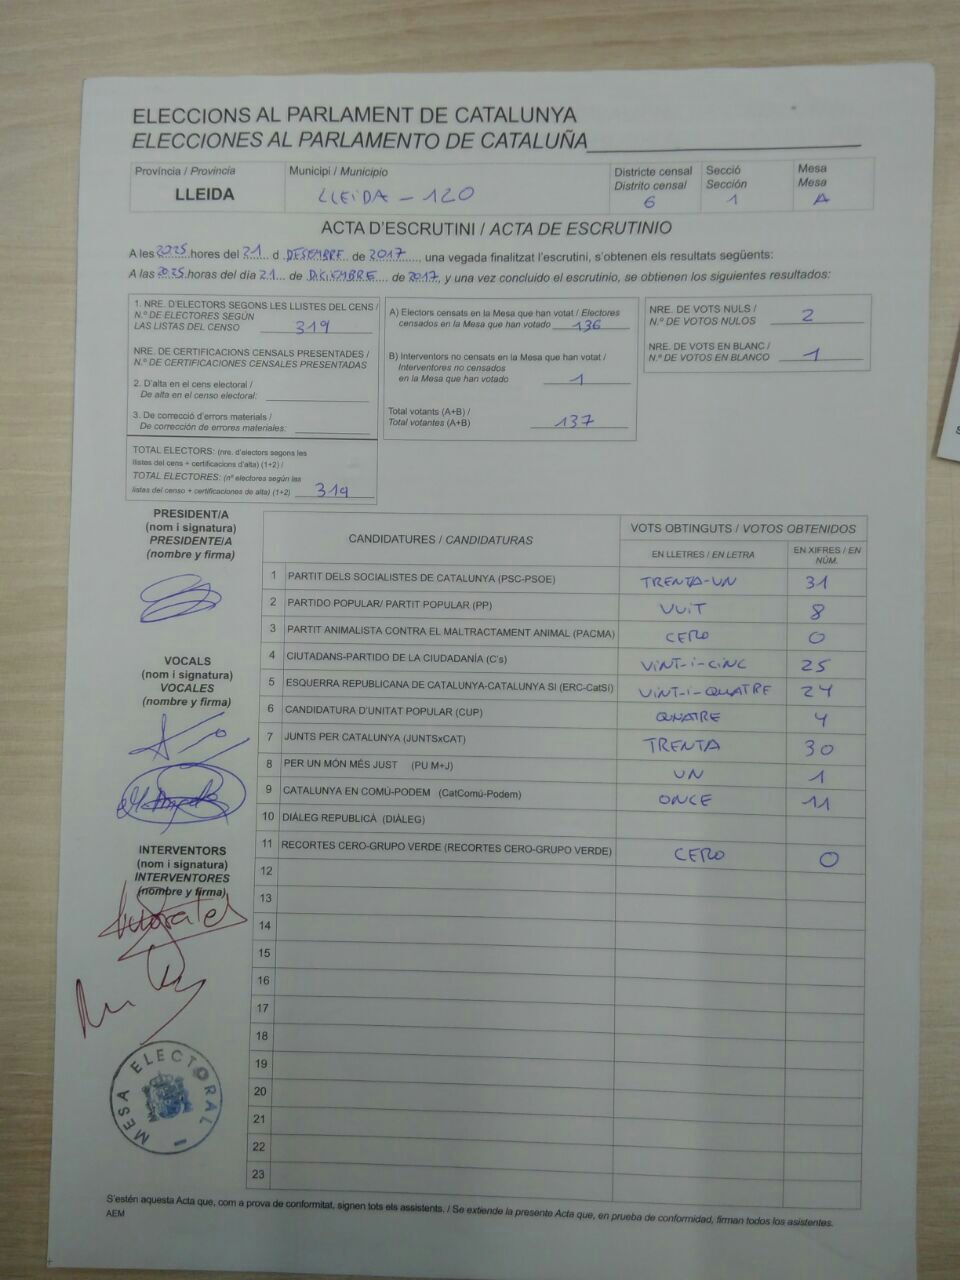 ELECCIONS AL PARLAMENT DE CATALUNYA
ELECCIONES AL PARLAMENTO DE CATALUÑA
Província / Provincia
LLEIDA
Municipi / Municipio
LLEIDA - 120
Districte censal
Distrito censal
6
Secció
Sección
1
Mesa
Mesa
A
ACTA D'ESCRUTINI / ACTA DE ESCRUTINIO
A les 20:25 hores del 21 d DESEMBRE de 2017, una vegada finalitzat l'escrutini, s'obtenen els resultats següents:
A las 20:25 horas del día 21 de DICIEMBRE de 2017, y una vez concluido el escrutinio, se obtienen los siguientes resultados:
1. NRE. D'ELECTORS SEGONS LES LLISTES DEL CENS /
N.º DE ELECTORES SEGÚN
LAS LISTAS DEL CENSO 319
NRE. DE CERTIFICACIONS CENSALS PRESENTADES /
N.º DE CERTIFICACIONES CENSALES PRESENTADAS
2. D'alta en el cens electoral /
De alta en el censo electoral:
3. De correcció d'errors materials /
De corrección de errores materiales:
TOTAL ELECTORS: (nre. d'electors segons les
llistes del cens + certificacions d'alta) (1+2) /
TOTAL ELECTORES: (nº electores según las
listas del censo + certificaciones de alta) (1+2) 319
A) Electors censats en la Mesa que han votat / Electores
censados en la Mesa que han votado 136
B) Interventors no censats en la Mesa que han votat /
Interventores no censados
en la Mesa que han votado 1
Total votants (A+B) /
Total votantes (A+B) 137
NRE. DE VOTS NULS /
N.º DE VOTOS NULOS 2
NRE. DE VOTS EN BLANC /
N.º DE VOTOS EN BLANCO 1
PRESIDENT/A
(nom i signatura)
PRESIDENTE/A
(nombre y firma)
VOCALS
(nom i signatura)
VOCALES
(nombre y firma)
INTERVENTORS
(nom i signatura)
INTERVENTORES
(nombre y firma)
CANDIDATURES / CANDIDATURAS
VOTS OBTINGUTS / VOTOS OBTENIDOS
EN LLETRES / EN LETRA
EN XIFRES / EN NÚM.
1 PARTIT DELS SOCIALISTES DE CATALUNYA (PSC-PSOE) TRENTA-UN 31
2 PARTIDO POPULAR/ PARTIT POPULAR (PP) VUIT 8
3 PARTIT ANIMALISTA CONTRA EL MALTRACTAMENT ANIMAL (PACMA) CERO 0
4 CIUTADANS-PARTIDO DE LA CIUDADANÍA (C's) VINT-I-CINC 25
5 ESQUERRA REPUBLICANA DE CATALUNYA-CATALUNYA SI (ERC-CatSí) VINT-I-QUATRE 24
6 CANDIDATURA D'UNITAT POPULAR (CUP) QUATRE 4
7 JUNTS PER CATALUNYA (JUNTSxCAT) TRENTA 30
8 PER UN MÓN MÉS JUST (PU M+J) UN 1
9 CATALUNYA EN COMÚ-PODEM (CatComú-Podem) ONCE 11
10 DIÀLEG REPUBLICÀ (DIÀLEG)
11 RECORTES CERO-GRUPO VERDE (RECORTES CERO-GRUPO VERDE) CERO 0
12
13
14
15
16
17
18
19
20
21
22
23
MESA ELECTORAL
S'estén aquesta Acta que, com a prova de conformitat, signen tots els assistents. / Se extiende la presente Acta que, en prueba de conformidad, firman todos los asistentes.
AEM